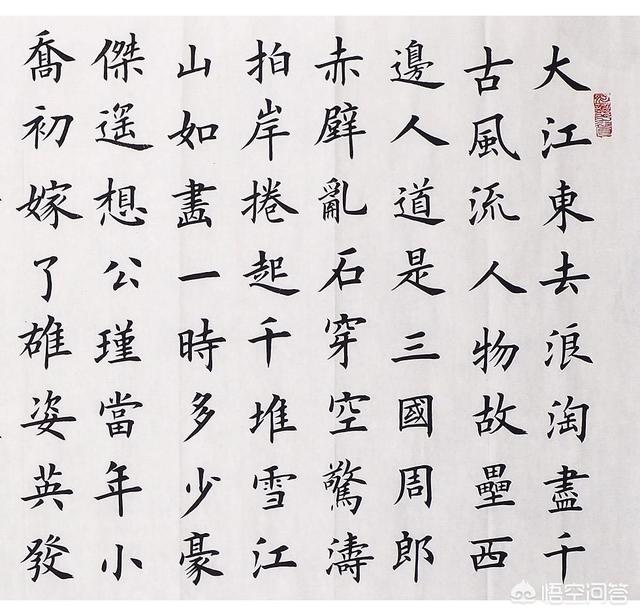 大江東去浪淘盡千
古風流人物故壘西
邊人道是三國周郎
赤壁亂石穿空驚濤
拍岸捲起千堆雪江
山如畫一時多少豪
傑遥想公瑾當年小
喬初嫁了雄姿英發
悟空问答